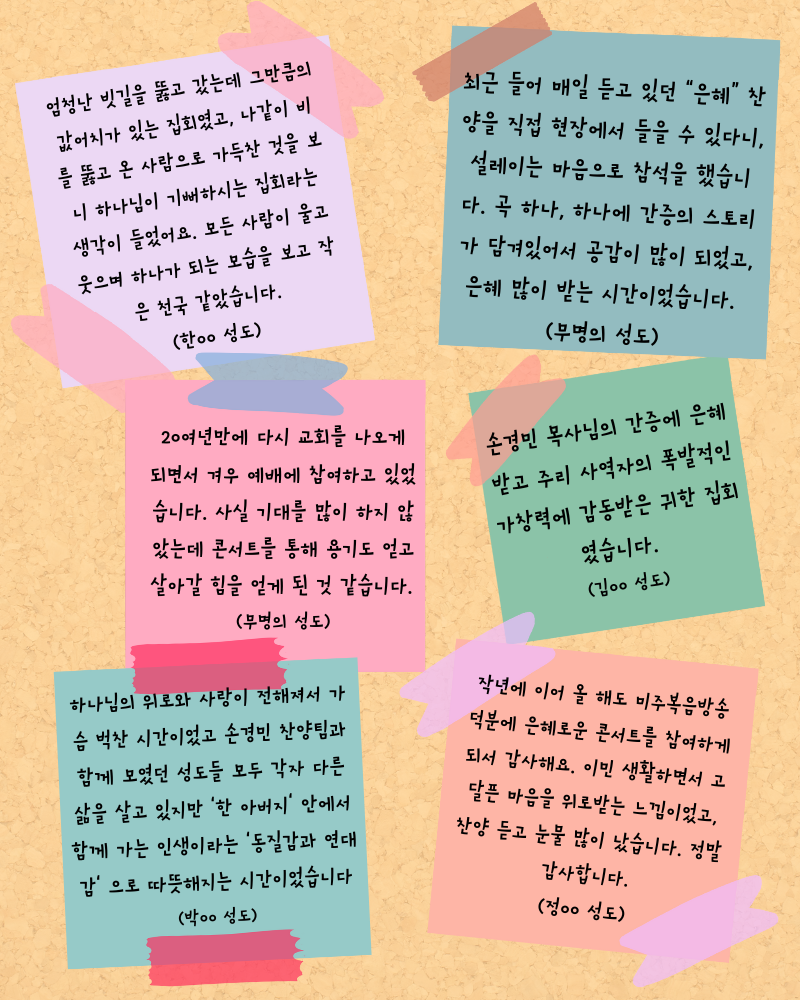 엄청난 빗길을 뚫고 갔는데 그만큼의
값어치가 있는 집회였고, 나같이 비
를 뚫고 온 사람으로 가득찬 것을 보
니 하나님이 기뻐하시는 집회라는
생각이 들었어요. 모든 사람이 울고
웃으며 하나가 되는 모습을 보고 작
은 천국 같았습니다.
(한oo 성도)
최근 들어 매일 듣고 있던 “은혜” 찬
양을 직접 현장에서 들을 수 있다니,
설레이는 마음으로 참석을 했습니
다. 곡 하나, 하나에 간증의 스토리
가 담겨있어서 공감이 많이 되었고,
은혜 많이 받는 시간이었습니다.
(무명의 성도)
20여년만에 다시 교회를 나오게
되면서 겨우 예배에 참여하고 있었
습니다. 사실 기대를 많이 하지 않
았는데 콘서트를 통해 용기도 얻고
살아갈 힘을 얻게 된 것 같습니다.
(무명의 성도)
손경민 목사님의 간증에 은혜
받고 주리 사역자의 폭발적인
가창력에 감동받은 귀한 집회
였습니다.
(김oo 성도)
하나님의 위로와 사랑이 전해져서 가
슴 벅찬 시간이었고 손경민 찬양팀과
함께 모였던 성도들 모두 각자 다른
삶을 살고 있지만 '한 아버지' 안에서
함께 가는 인생이라는 '동질감과 연대
감' 으로 따뜻해지는 시간이었습니다
(박oo 성도)
작년에 이어 올 해도 미주복음방송
덕분에 은혜로운 콘서트를 참여하게
되서 감사해요. 이민 생활하면서 고
달픈 마음을 위로받는 느낌이었고,
찬양 듣고 눈물 많이 났습니다. 정말
감사합니다.
(정oo 성도)